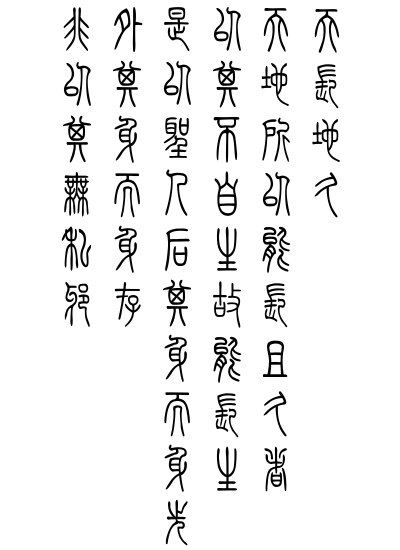 天長地久
天地所以能長且久者
以其不自生故能長生
是以聖人后其身而身先
外其身而身存
非以其無私邪